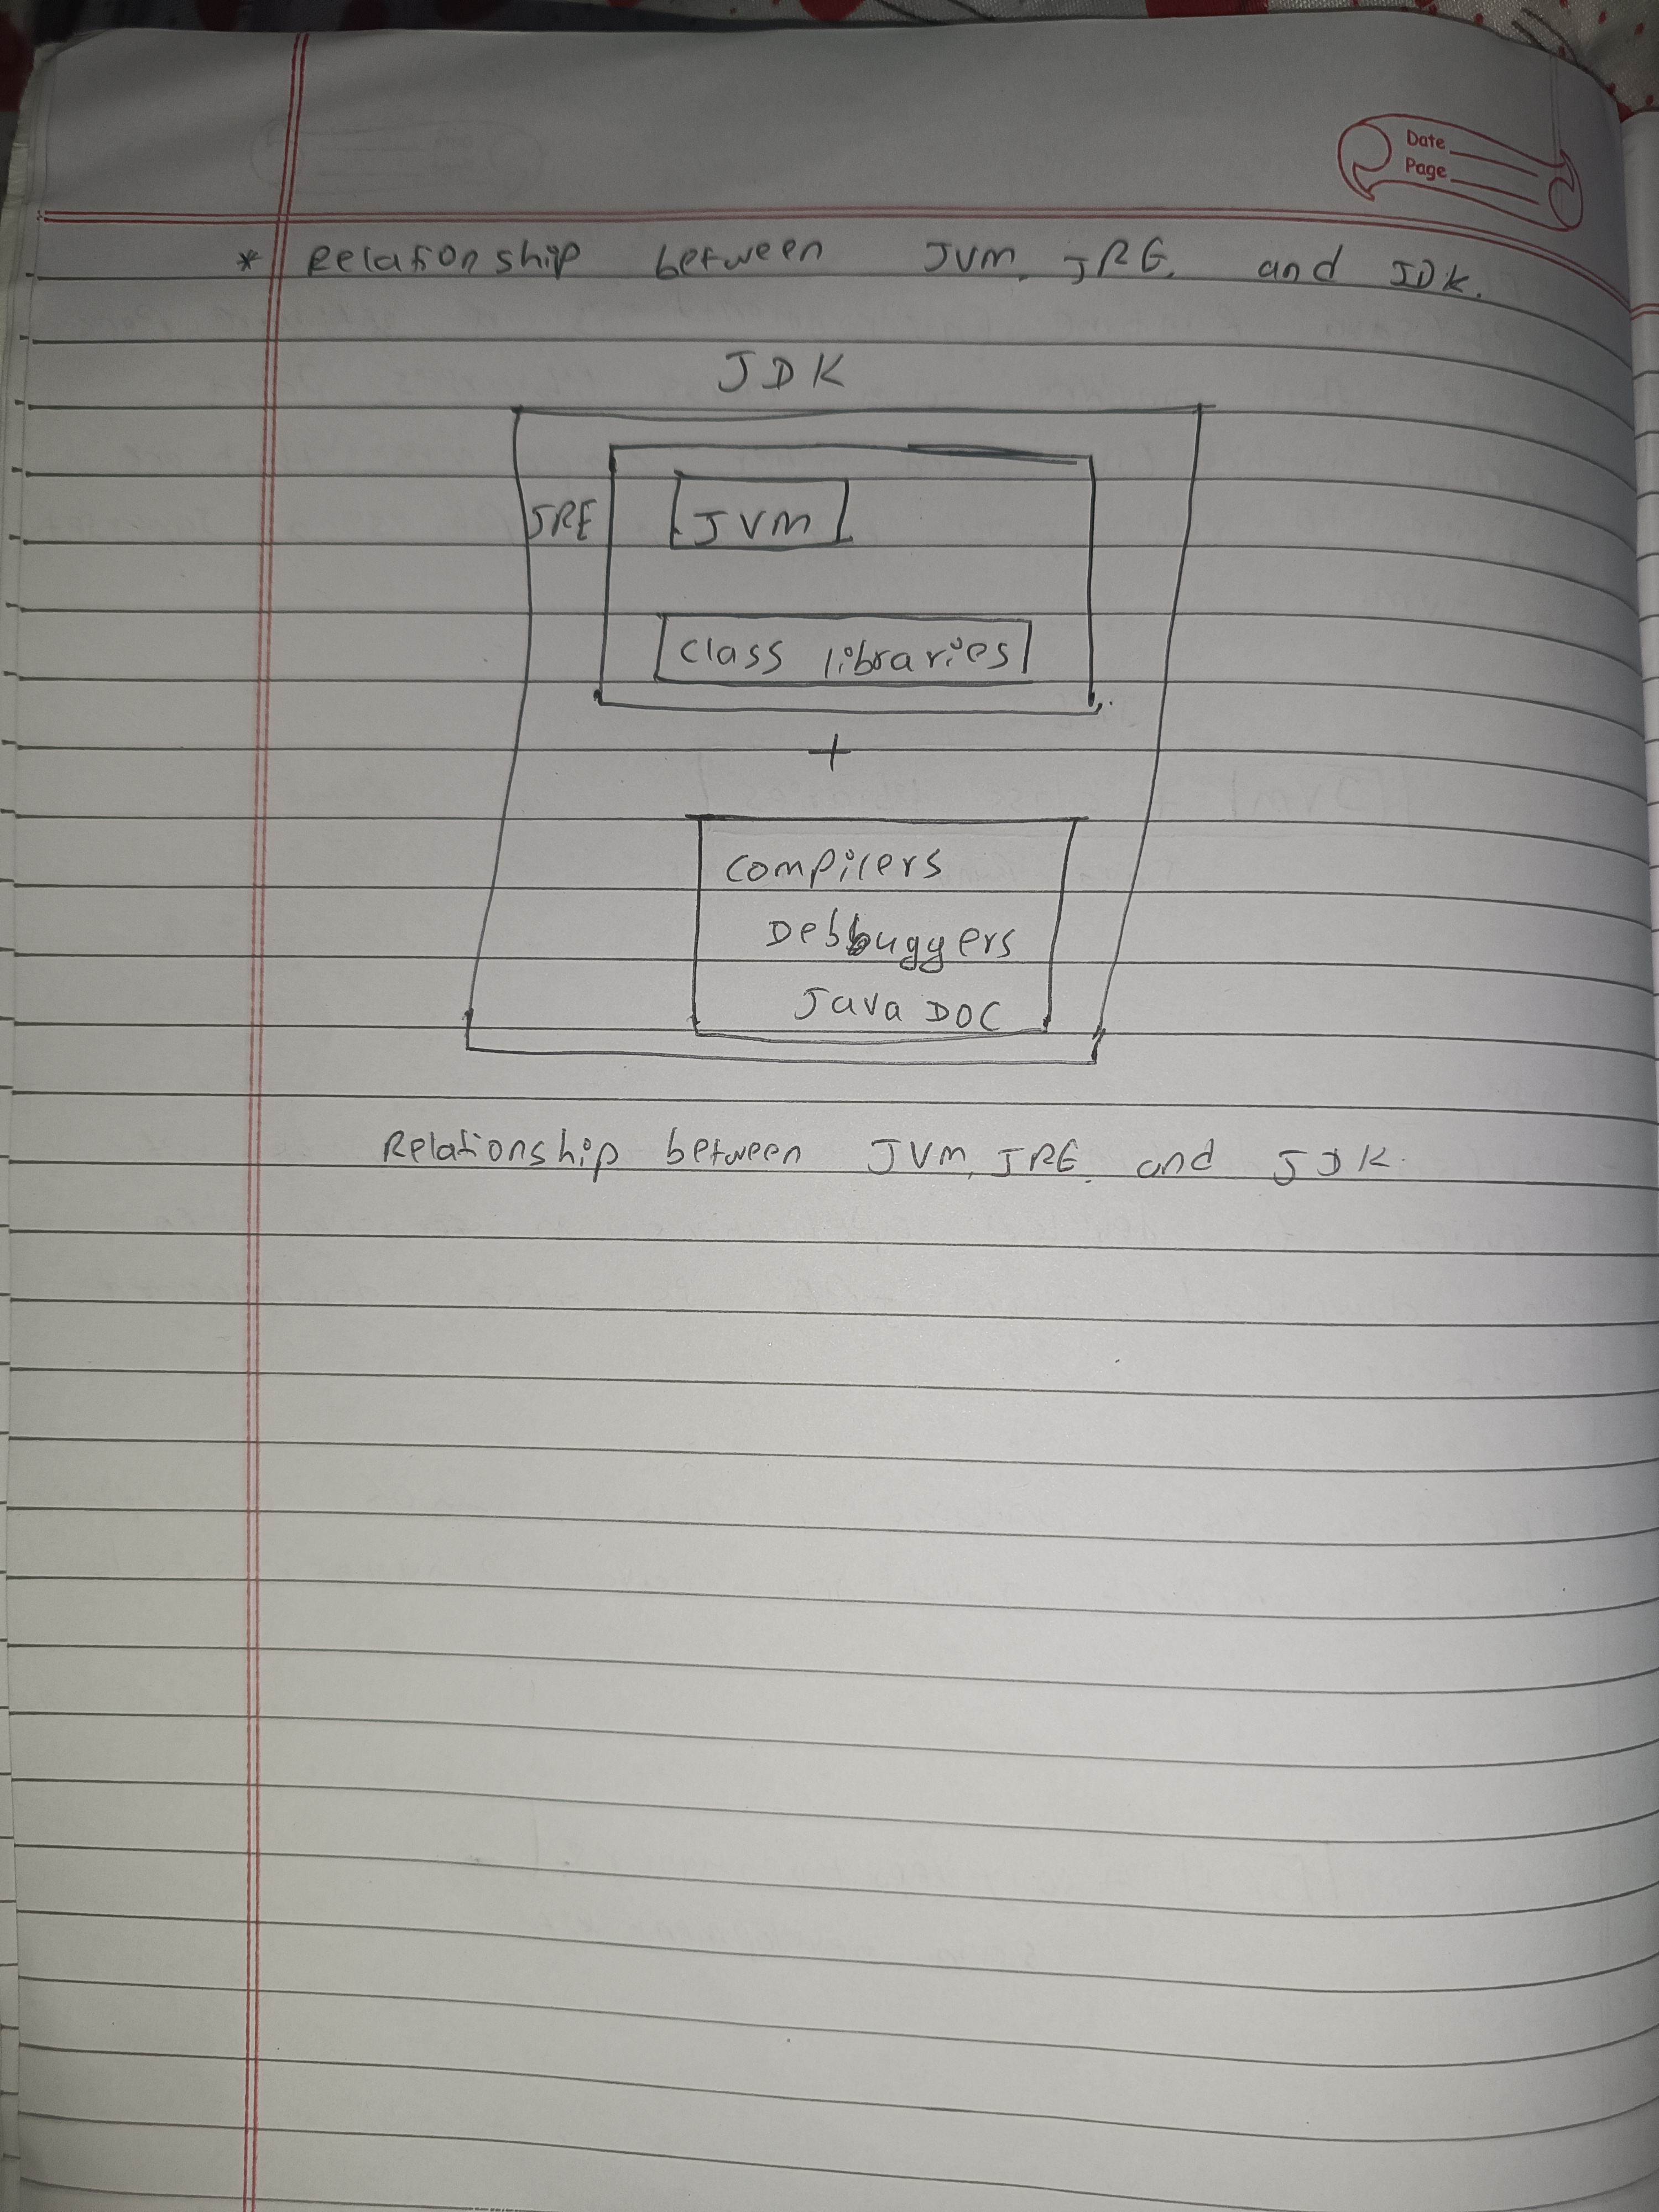 Date
Page
* Relationship between JVM, JRE, and JDK.
JDK
JRE
JVM
class libraries
+
compilers
Debbuggers
Java DOC
Relationship between JVM, JRE, and JDK.